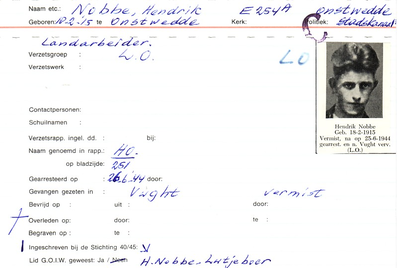 Naam etc.: Nobbe, Hendrik E 254A Onstwedde
Geboren: 18-2-15 te Onstwedde Kerk: Politiek: Stadskanaal
Landarbeider.
Verzetsgroep: L.O. LO
Verzetswerk
Contactpersonen:
Schuilnaam :
Verzetsrapp. ingel. dd. : bij:
Naam genoemd in rapp.: HO.
op bladzijde: 251
Gearresteerd op : 26.6.'44 door:
Gevangen gezeten in : Vught vermist
Bevrijd op : uit : door:
Overleden op: door: te :
Begraven op : te :
Ingeschreven bij de Stichting 40/45:
Lid G.O.I.W. geweest: Ja / Neen H. Nobbe-Lutjeboer
Hendrik Nobbe
Geb. 18-2-1915
Vermist, na op 25-6-1944
gearrest. en n. Vught verv.
(L.O.)